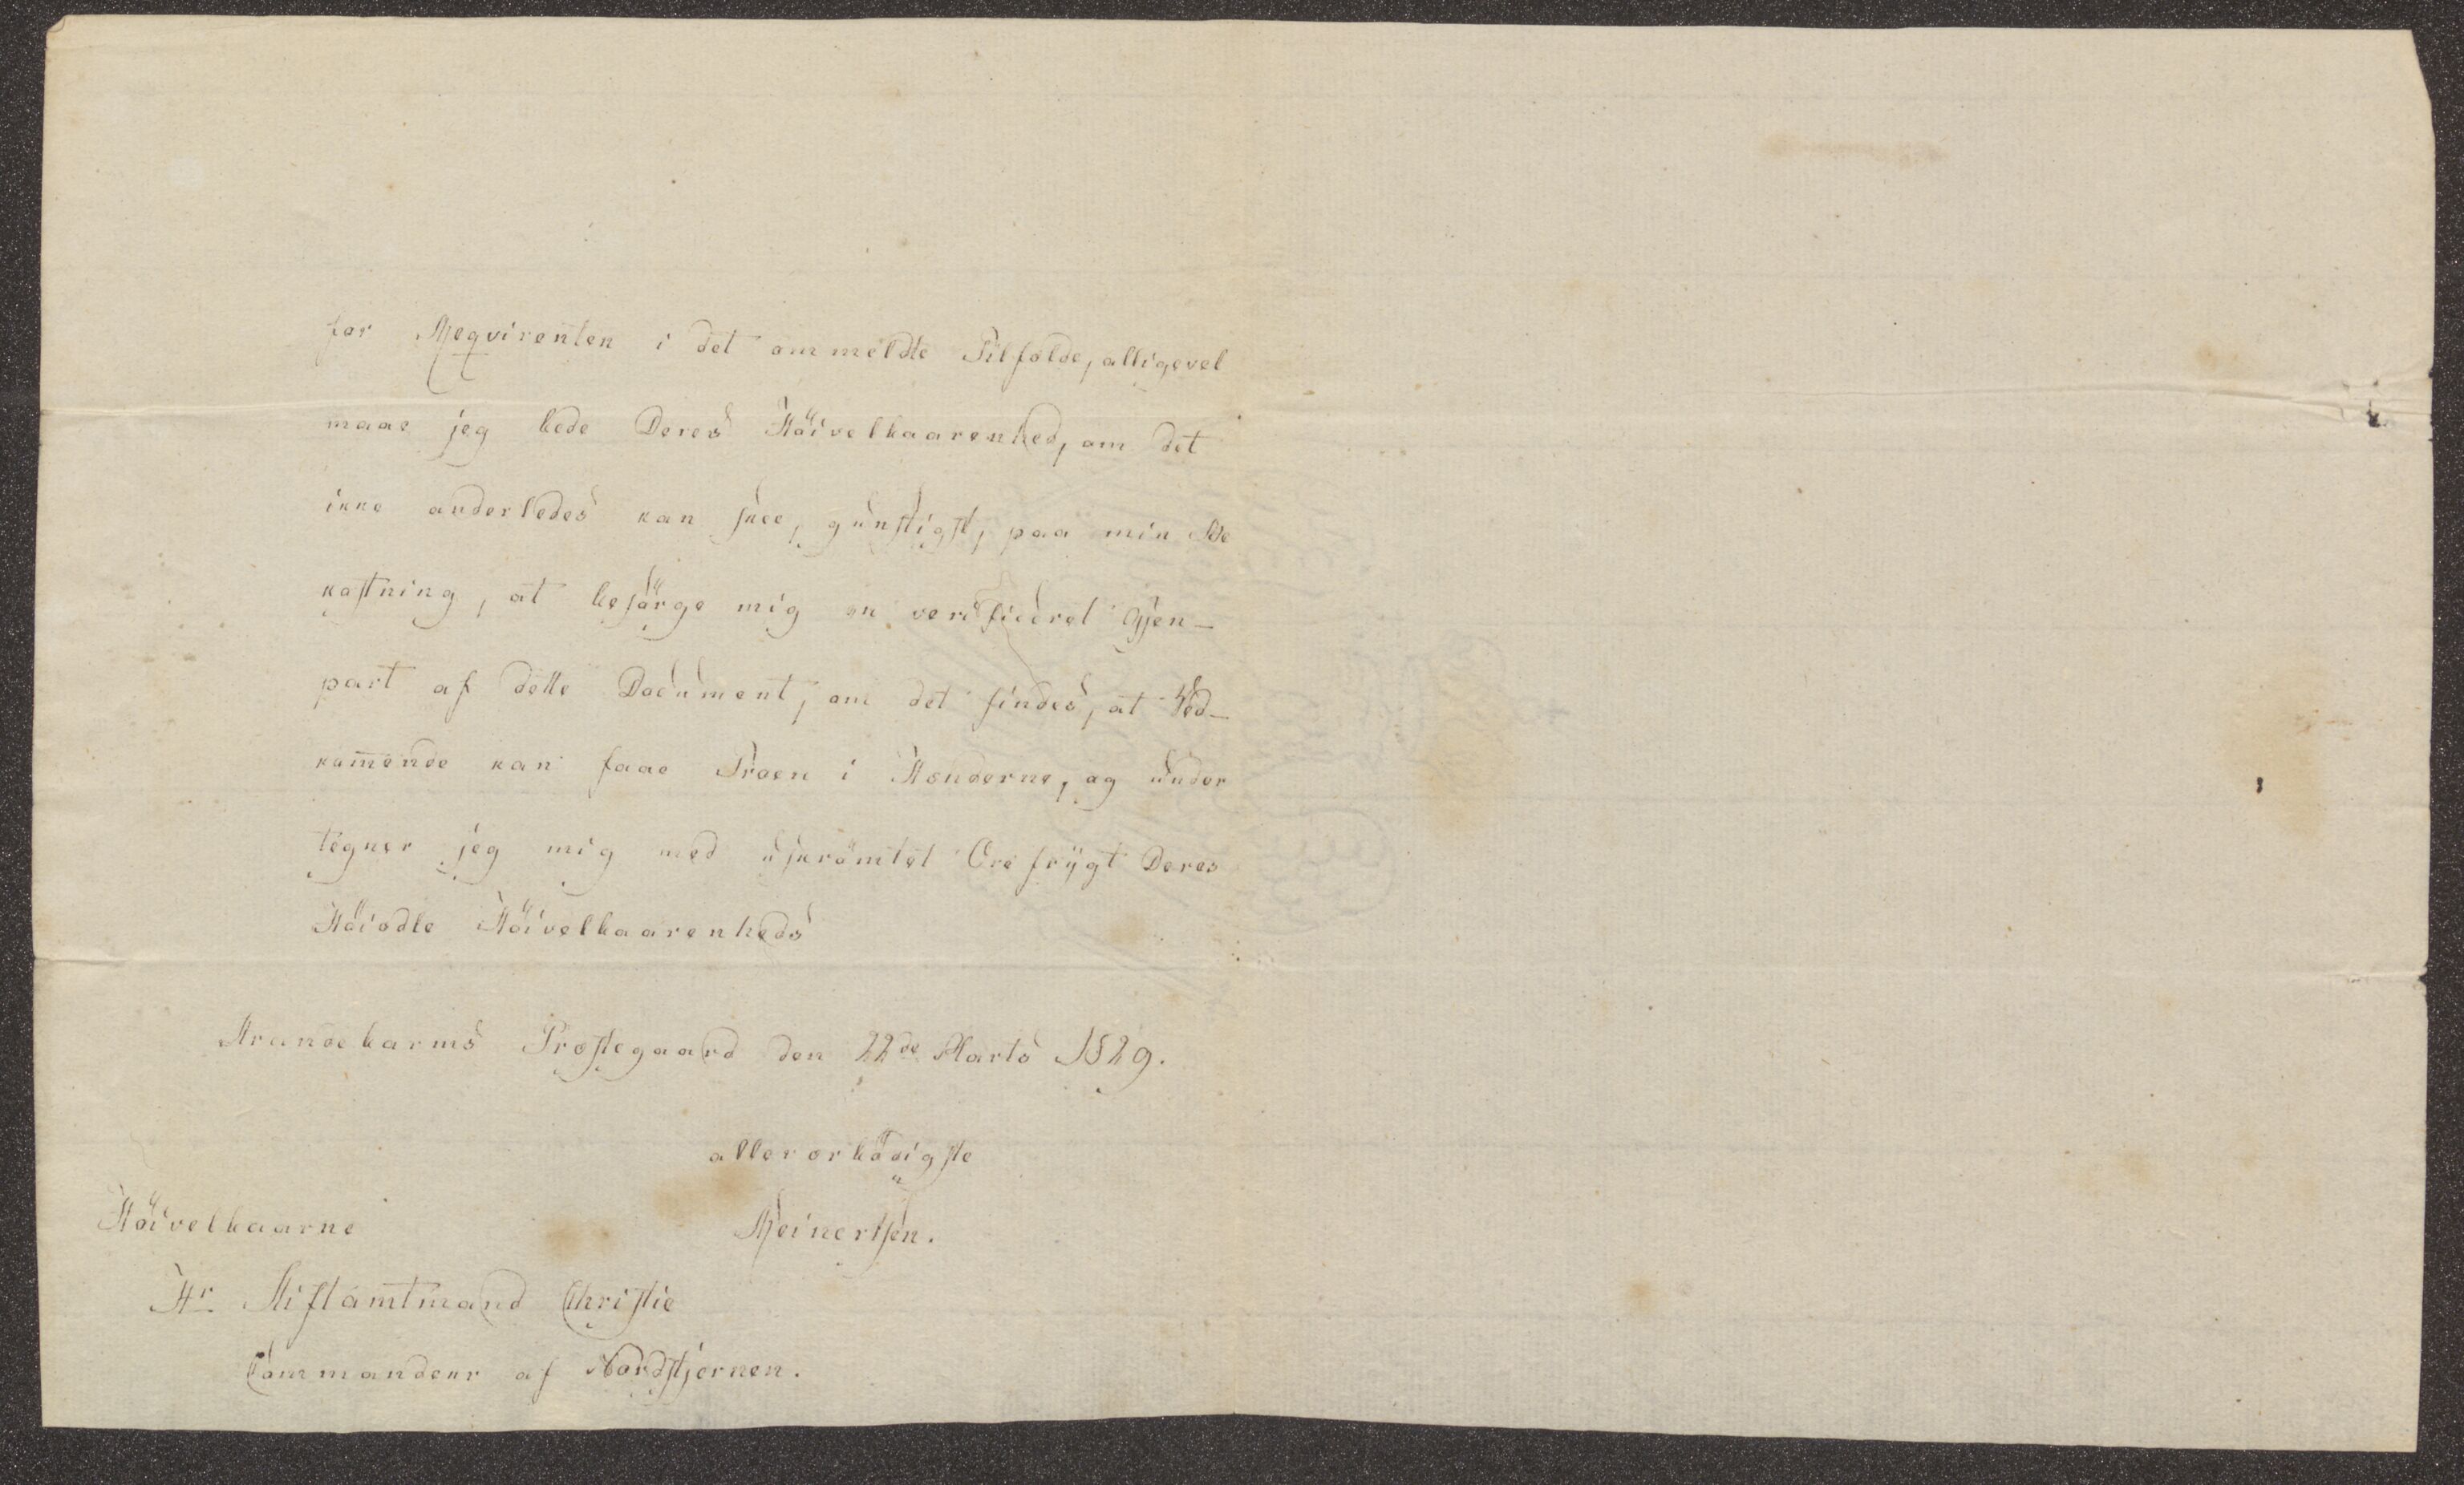 for Reqvirenten i det ommeldte Tilfælde, alligevel
maae jeg bede Deres Höivelbaarenhed, om det
ikke anderledes kan skee, gunstigst, paa min Be
kostning, at besörge mig en verificeret Gjen-
part af dette Document, om det findes, at Ved-
kom̅ende kan faae Troen i Hænderne, og under
tegner jeg mig med uskrömtet Ærefrÿgt Deres
Höiædle Höivelbaarenheds
Strandebarms Præstegaard den 22de Marts 1829.
allerærbödigste
Reinertsen.
Höivelbaarne
Hr Stiftamtmand Christie
Commandeur af Nordstjernen.